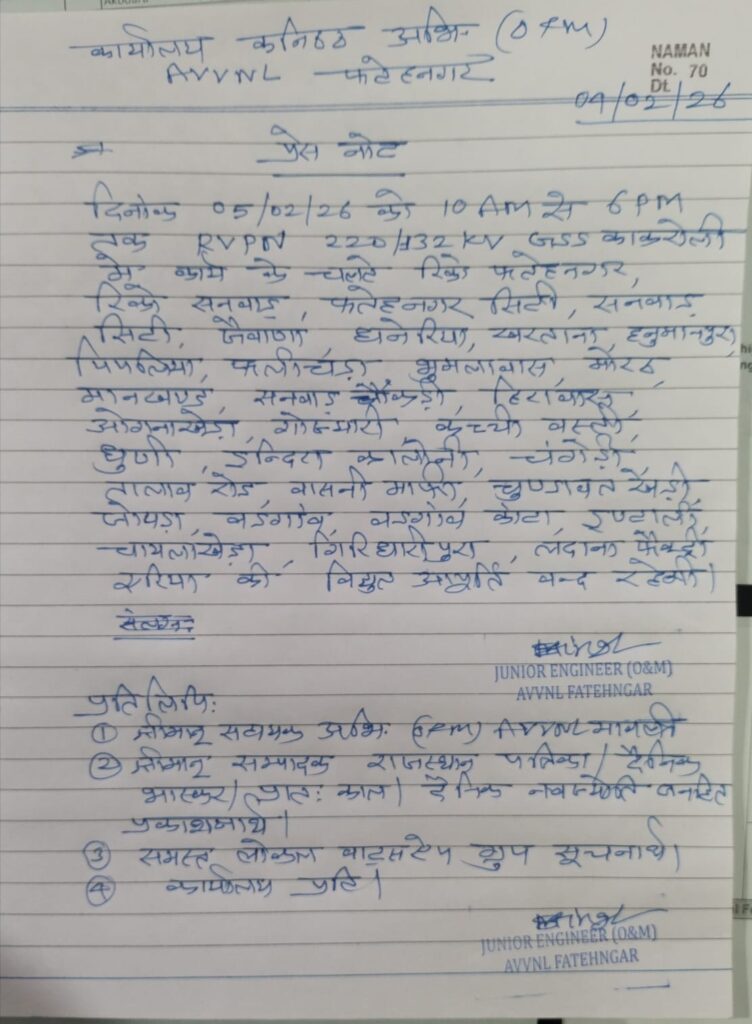 कार्यालय कनिष्ठ अभि. (O&M)
AVVNL फतेहनगर
NAMAN
No. 70
Dt.
04/02/26
प्रेस नोट
दिनांक 05/02/26 को 10 AM से 6 PM
तक RVPN 220/132 KV GSS कांकरोली
मे कार्य के चलते रिको फतेहनगर,
रिको सनवाड़, फतेहनगर सिटी, सनवाड़
सिटी, जेवाणा, धनेरिया, खरताना, हनुमानपुरा,
पिपलिया, फलीचड़ा, भुमलावास, मोरठ,
मानखण्ड, सनवाड़ चौकड़ी,
ओगनाखेड़ा, गोजमारी, कच्ची बस्ती,
धुणी, इन्दिरा कालोनी, चंगेड़ी,
तालाब रोड, वासनी माफी, चुण्डावत खेड़ी,
जोयड़ा, वडगांव, वडगांव केटा, इण्टाली,
चायलाखेड़ा, गिरिधारीपुरा, लदाना फैक्ट्री
एरिया की विद्युत आपूर्ति बन्द रहेगी।
JUNIOR ENGINEER (O&M)
AVVNL FATEHNGAR
प्रतिलिपि:
① श्रीमान् सहायक अभि. (O&M) AVVNL मावली
② श्रीमान् सम्पादक राजस्थान पत्रिका/ दैनिक
भास्कर/ प्रात: काल/ दैनिक नवज्योति जनहित
प्रकाशनार्थ।
③ समस्त लोकल वाट्सऐप ग्रुप सूचनार्थ।
④ कार्यालय प्रति।
JUNIOR ENGINEER (O&M)
AVVNL FATEHNGAR